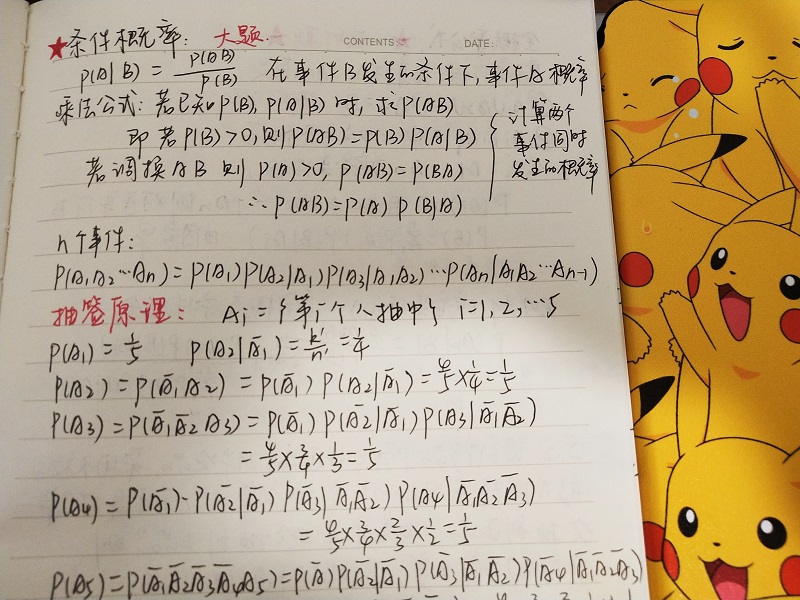 ★条件概率: 大题
CONTENTS: DATE:
P(A|B) = P(AB)/P(B) 在事件B发生的条件下,事件A概率
乘法公式: 若已知P(B), P(A|B)时, 求P(AB)
即若P(B)>0, 则P(AB)=P(B)P(A|B)
若调换AB 则P(A)>0, P(AB)=P(BA)
∴P(AB)=P(A)P(B|A)
计算两个
事件同时
发生的概率
n个事件:
P(A₁A₂…An)=P(A₁)P(A₂|A₁)P(A₃|A₁A₂)…P(An|A₁A₂…An-1)
抽签原理: Ai={第i个人抽中} i=1,2,…5
P(A₁)=1/5 P(A₂|Ā₁)= =1/4
P(A₂)=P(Ā₁A₂)=P(Ā₁)P(A₂|Ā₁)=4/5×1/4=1/5
P(A₃)=P(Ā₁Ā₂A₃)=P(Ā₁)P(Ā₂|Ā₁)P(A₃|Ā₁Ā₂)
=4/5×3/4×1/3=1/5
P(A₄)=P(Ā₁)·P(Ā₂|Ā₁)P(Ā₃|Ā₁Ā₂)P(A₄|Ā₁Ā₂Ā₃)
=4/5×3/4×2/3×1/2=1/5
P(A₅)=P(Ā₁Ā₂Ā₃Ā₄A₅)=P(Ā)P(Ā₂|Ā₁)P(Ā₃|Ā₁Ā₂)P(Ā₄|Ā₁Ā₂Ā₃)